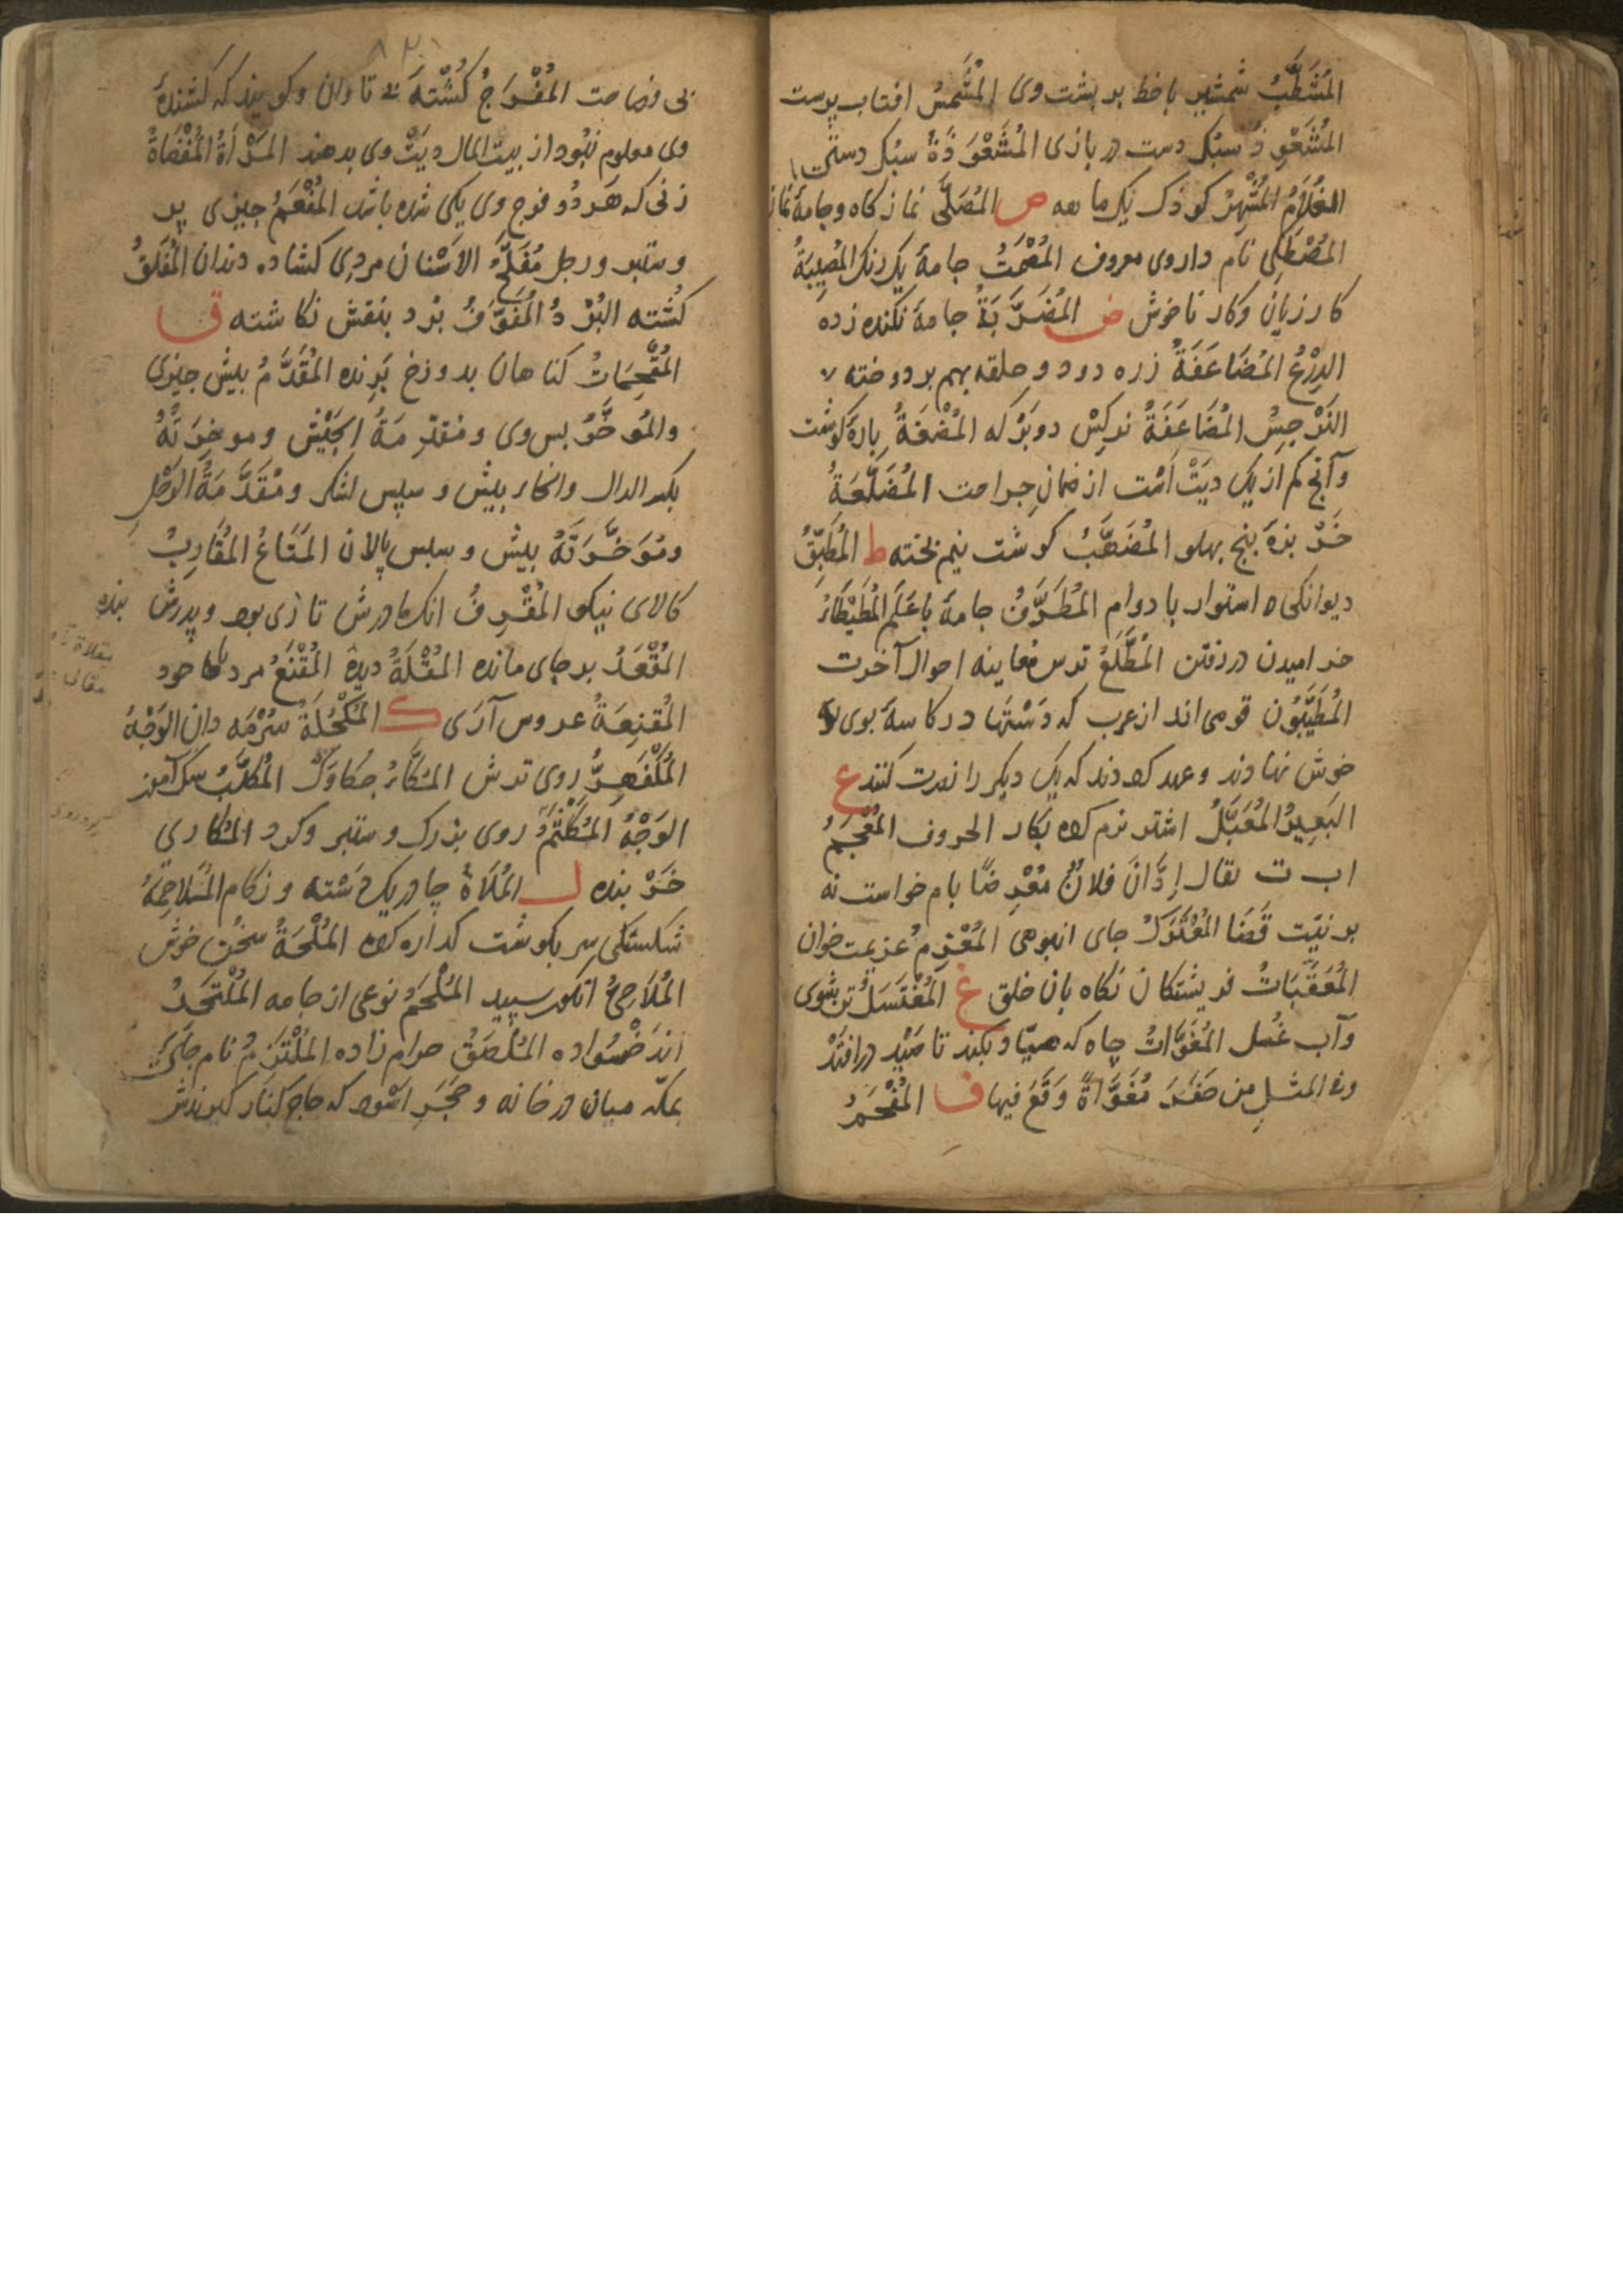 المُشَطَّبُ شمشیر با خط بر پشت وی المُشَمِّسُ افتاب پرست
المُشَعْوِذُ سبُک دست در بازی المُشَعْوَذَةُ سبُک دستی
الغُلَامُ المُشْهِرُ کوذک یک ماهه ص المُصَلَّی نماز کاه و جامهٔ نماز
المُصْطَکِی نام داروی معروف المُصْمَتُ جامهٔ یک رنک المُصِیبَةُ
کار زیان و کار ناخوش ض المُضَرَّبَةُ جامهٔ نکنده زده
الدِرْعُ المُضَاعَفَةُ زره دو دو حلقه بهم بر دوخته
النَرْجِسُ المُضَاعَفَةُ نرکِسْ دو بَرْکه المُضْغَةُ پارهٔ کوشت
وآنچ کم از یک دیَتْ اسْت از ضمانِ جراحت المُضَلَّعَةُ
خَرْ بزهٔ پنج بهلو المُضَهَّبُ کوشت نیم پخته ط المُطَبِّقُ
دیوانکی استوار با دوام المُطَرَّفُ جامهٔ با عَلَم المُطَیْطَاءُ
خرامیدن در رفتن المُطَّلَعُ ترس معاینه احوال آخرت
المُطَیَّبُون قومی اند از عرب که دَسْتها در کاسهٔ بوی
خوش نهادند و عهد کردند که یک دیکر را نصرت کنند ع
البَعِیرُ المُعَبَّلُ اشتر نرم کرده بکار الحروف المُعْجَمُ
ا ب ت یقال إدَّانَ فلانٌ مُعْرِضًا بام خواست نه
بر نیّت قَضَا المُعْتَرَکُ جای انبوهی المُعْزِمُ عزیمت خوان
المُعَقِّبَاتُ فریشتکان نکاه بان خلق غ المُغْتَسَلُ تن بشوی
وآب غُسل المُغَوَّاتُ چاه که صیّاد بکند تا صَیْد در افتَدْ
وفی المثل من حَفَرَ مُغَوَّاةً وَقَعَ فیها ف المُفْحَمُ
بی فصاحت المُفْرَجُ کُشْتهٔ بی تاوان و کویند که کشندهٔ
وی معلوم نبُود از بیت المال دیَتْ وی بدهند المَرْأةُ المُفْضَاةُ
زنی که هَر دُو فرج وی یکی شده باشد المُفْعَمُ چیزی پر
و ستبر و رجل مُفَلَّجُ الاسْنان مردی کشاده دندان المُفَلَّقُ
کُشته البُرْدُ المُفَوَّفُ بُرْد بنَقش نکاشته ق
المُقْحِمَاتُ کناهان بدوزخ بَرنده المُقَدَّمُ پیش چیزی
والمُؤخَّرُ پس وی و مُقَدِّمَةُ الجَیْش و موخِرَتُهُ
بکسر الدال والخاء پیش و سپس لشکر و مُقَدَّمَةُ الرَحْلِ
ومُوَخَّرَتُهُ پیش و سپس پالان المَتَاعُ المُقَارِبُ
کالای نیکو المُقْرِفُ انک مادرش تازی بود و پدرش بنده
المُقْعَدُ بر جای مانده المُقْلَةُ دیدهٔ المُقْنَعُ مرد با خود
المُقنِعَةُ عروس آرَی ک المُکْحُلَةُ سُرْمَه دان الوَجْهُ
المُکْفَهِرُّ روی ترش المُکَّاءُ چکاوَک المُکَلِّبُ سک آموز
الوَجْهُ المُکَلْثَمُ روی بزرک و ستبر و کرد المُکاری
خَرْ بنده ل المُلَاةُ چادر یک دَسْته و زکام المُتَلاحِمَةُ
شکستکی سر بکوشت کذاره کرده المُلْحَةُ سخن خوش
المُلَاحِیُّ انکور سپید المُلْحَمُ نوعی از جامه المُلْتَحَدُ
اندَخسواده المُلْصَقُ حرام زاده المُلْتَزَمُ نام جَای
بمکّه میان در خانه و حَجَرِ اسْود که حاج کنار کیرندش